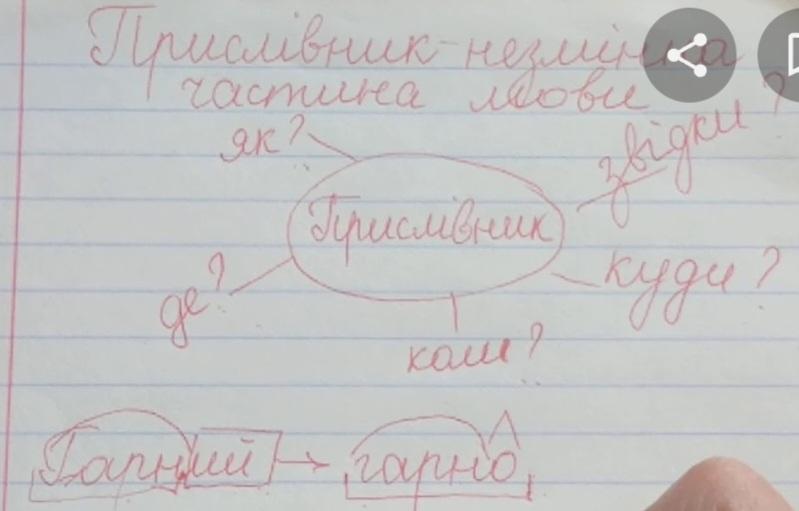 Прислівник - незмінна
частина мови
як?
звідки?
Прислівник
куди?
де?
коли?
Гарний → гарно